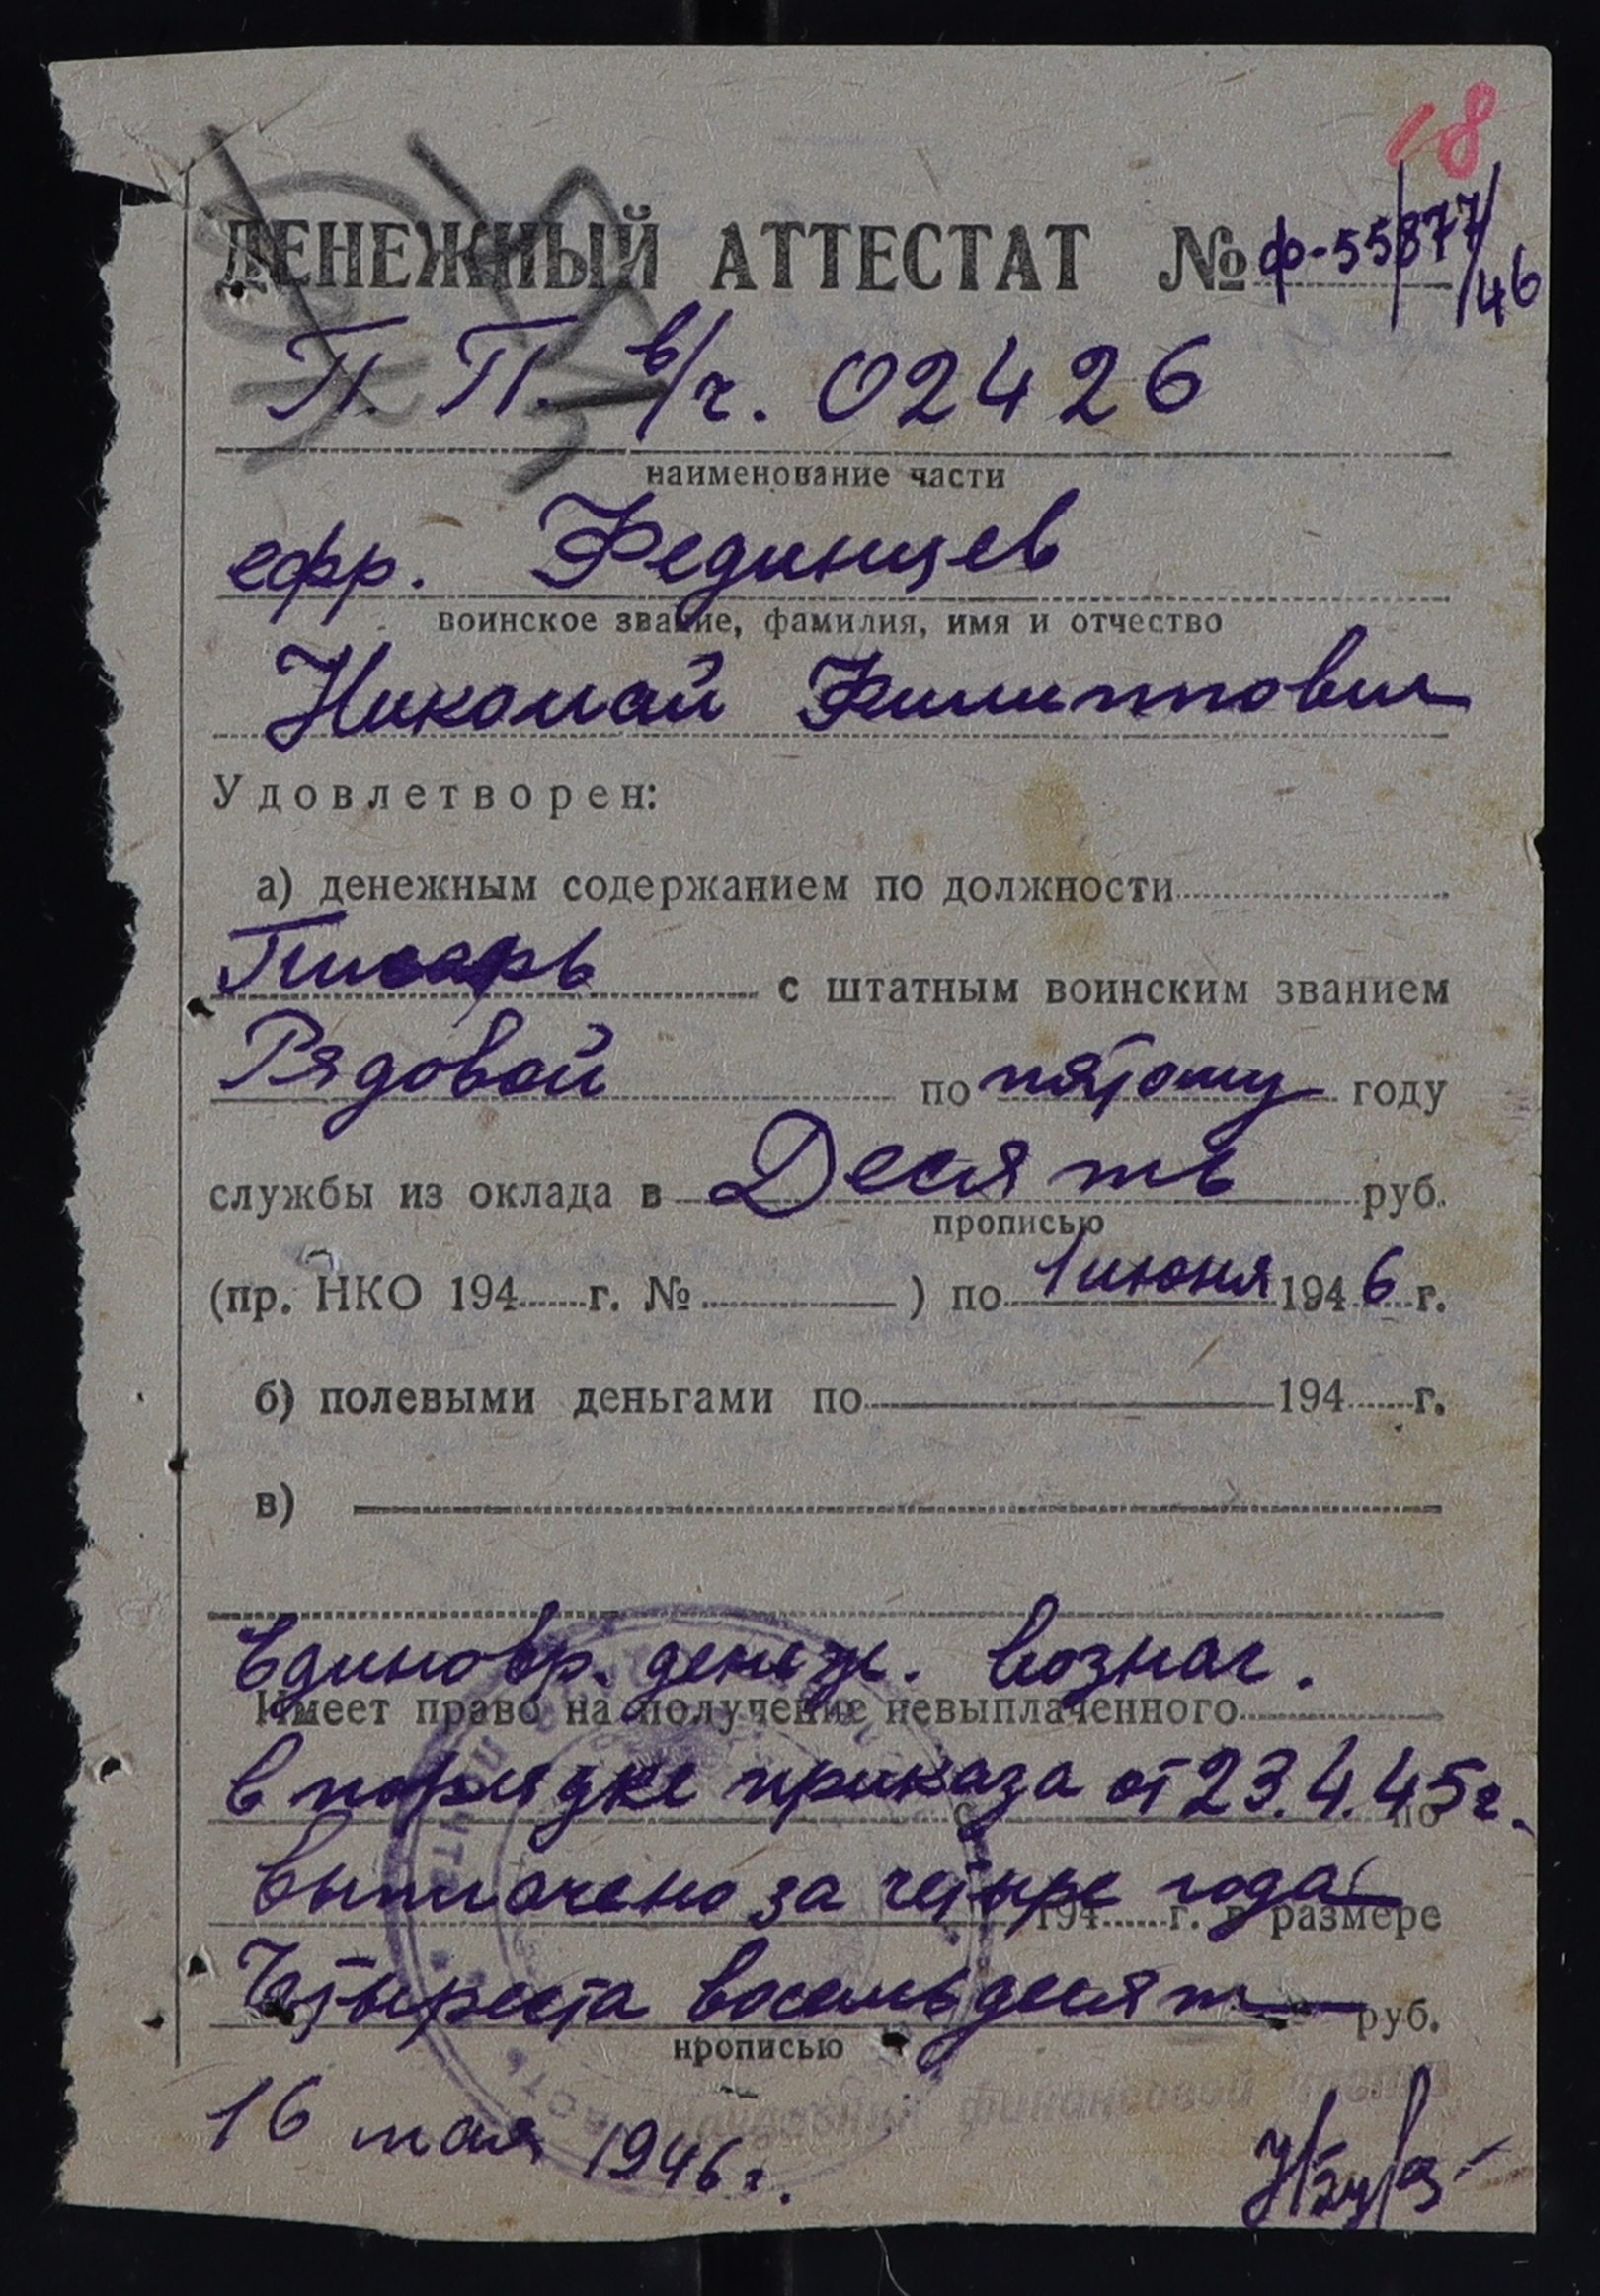 18
ДЕНЕЖНЫЙ АТТЕСТАТ № ф-55877/46
П. П. в/ч. 02426
наименование части
ефр. Фединцев
воинское звание, фамилия, имя и отчество
Николай Филиппович
Удовлетворен:
а) денежным содержанием по должности
Писарь с штатным воинским званием
Рядовой по пятому году
службы из оклада в Десять руб.
прописью
(пр. НКО 194 г. № ) по 1 июня 1946 г.
б) полевыми деньгами по 194 г.
в)
Единовр. денежн. вознаг.
Имеет право на получение невыплаченного
в порядке приказа от 23.4.45г.
с по
выплачено за четыре года
194 г. в размере
Четыреста восемьдесят руб.
прописью
Начальник финансовой части
16 мая 1946 г.